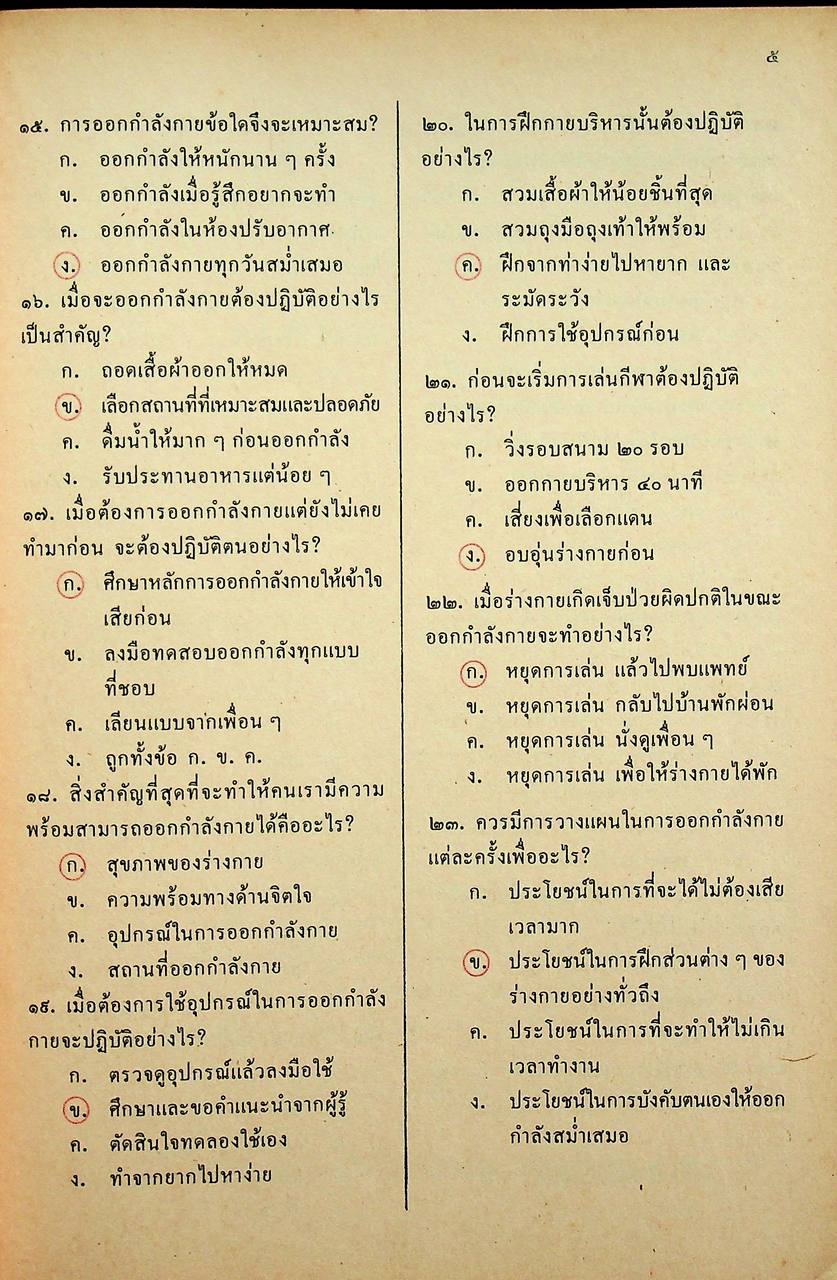 ๕
๑๕. การออกกำลังกายข้อใดจึงจะเหมาะสม?
ก. ออกกำลังให้หนักนาน ๆ ครั้ง
ข. ออกกำลังเมื่อรู้สึกอยากจะทำ
ค. ออกกำลังในห้องปรับอากาศ
ง. ออกกำลังกายทุกวันสม่ำเสมอ
๑๖. เมื่อจะออกกำลังกายต้องปฏิบัติอย่างไร
เป็นสำคัญ?
ก. ถอดเสื้อผ้าออกให้หมด
ข. เลือกสถานที่ที่เหมาะสมและปลอดภัย
ค. ดื่มน้ำให้มาก ๆ ก่อนออกกำลัง
ง. รับประทานอาหารแต่น้อย ๆ
๑๗. เมื่อต้องการออกกำลังกายแต่ยังไม่เคย
ทำมาก่อน จะต้องปฏิบัติตนอย่างไร?
ก. ศึกษาหลักการออกกำลังกายให้เข้าใจ
เสียก่อน
ข. ลงมือทดสอบออกกำลังทุกแบบ
ที่ชอบ
ค. เลียนแบบจากเพื่อน ๆ
ง. ถูกทั้งข้อ ก. ข. ค.
๑๘. สิ่งสำคัญที่สุดที่จะทำให้คนเรามีความ
พร้อมสามารถออกกำลังกายได้คืออะไร?
ก. สุขภาพของร่างกาย
ข. ความพร้อมทางด้านจิตใจ
ค. อุปกรณ์ในการออกกำลังกาย
ง. สถานที่ออกกำลังกาย
๑๙. เมื่อต้องการใช้อุปกรณ์ในการออกกำลัง
กายจะปฏิบัติอย่างไร?
ก. ตรวจดูอุปกรณ์แล้วลงมือใช้
ข. ศึกษาและขอคำแนะนำจากผู้รู้
ค. ตัดสินใจทดลองใช้เอง
ง. ทำจากยากไปหาง่าย
๒๐. ในการฝึกกายบริหารนั้นต้องปฏิบัติ
อย่างไร?
ก. สวมเสื้อผ้าให้น้อยชิ้นที่สุด
ข. สวมถุงมือถุงเท้าให้พร้อม
ค. ฝึกจากท่าง่ายไปหายาก และ
ระมัดระวัง
ง. ฝึกการใช้อุปกรณ์ก่อน
๒๑. ก่อนจะเริ่มการเล่นกีฬาต้องปฏิบัติ
อย่างไร?
ก. วิ่งรอบสนาม ๒๐ รอบ
ข. ออกกายบริหาร ๔๐ นาที
ค. เสี่ยงเพื่อเลือกแดน
ง. อบอุ่นร่างกายก่อน
๒๒. เมื่อร่างกายเกิดเจ็บป่วยผิดปกติในขณะ
ออกกำลังกายจะทำอย่างไร?
ก. หยุดการเล่น แล้วไปพบแพทย์
ข. หยุดการเล่น กลับไปบ้านพักผ่อน
ค. หยุดการเล่น นั่งดูเพื่อน ๆ
ง. หยุดการเล่น เพื่อให้ร่างกายได้พัก
๒๓. ควรมีการวางแผนในการออกกำลังกาย
แต่ละครั้งเพื่ออะไร?
ก. ประโยชน์ในการที่จะได้ไม่ต้องเสีย
เวลามาก
ข. ประโยชน์ในการฝึกส่วนต่าง ๆ ของ
ร่างกายอย่างทั่วถึง
ค. ประโยชน์ในการที่จะทำให้ไม่เกิน
เวลาทำงาน
ง. ประโยชน์ในการบังคับตนเองให้ออก
กำลังสม่ำเสมอ